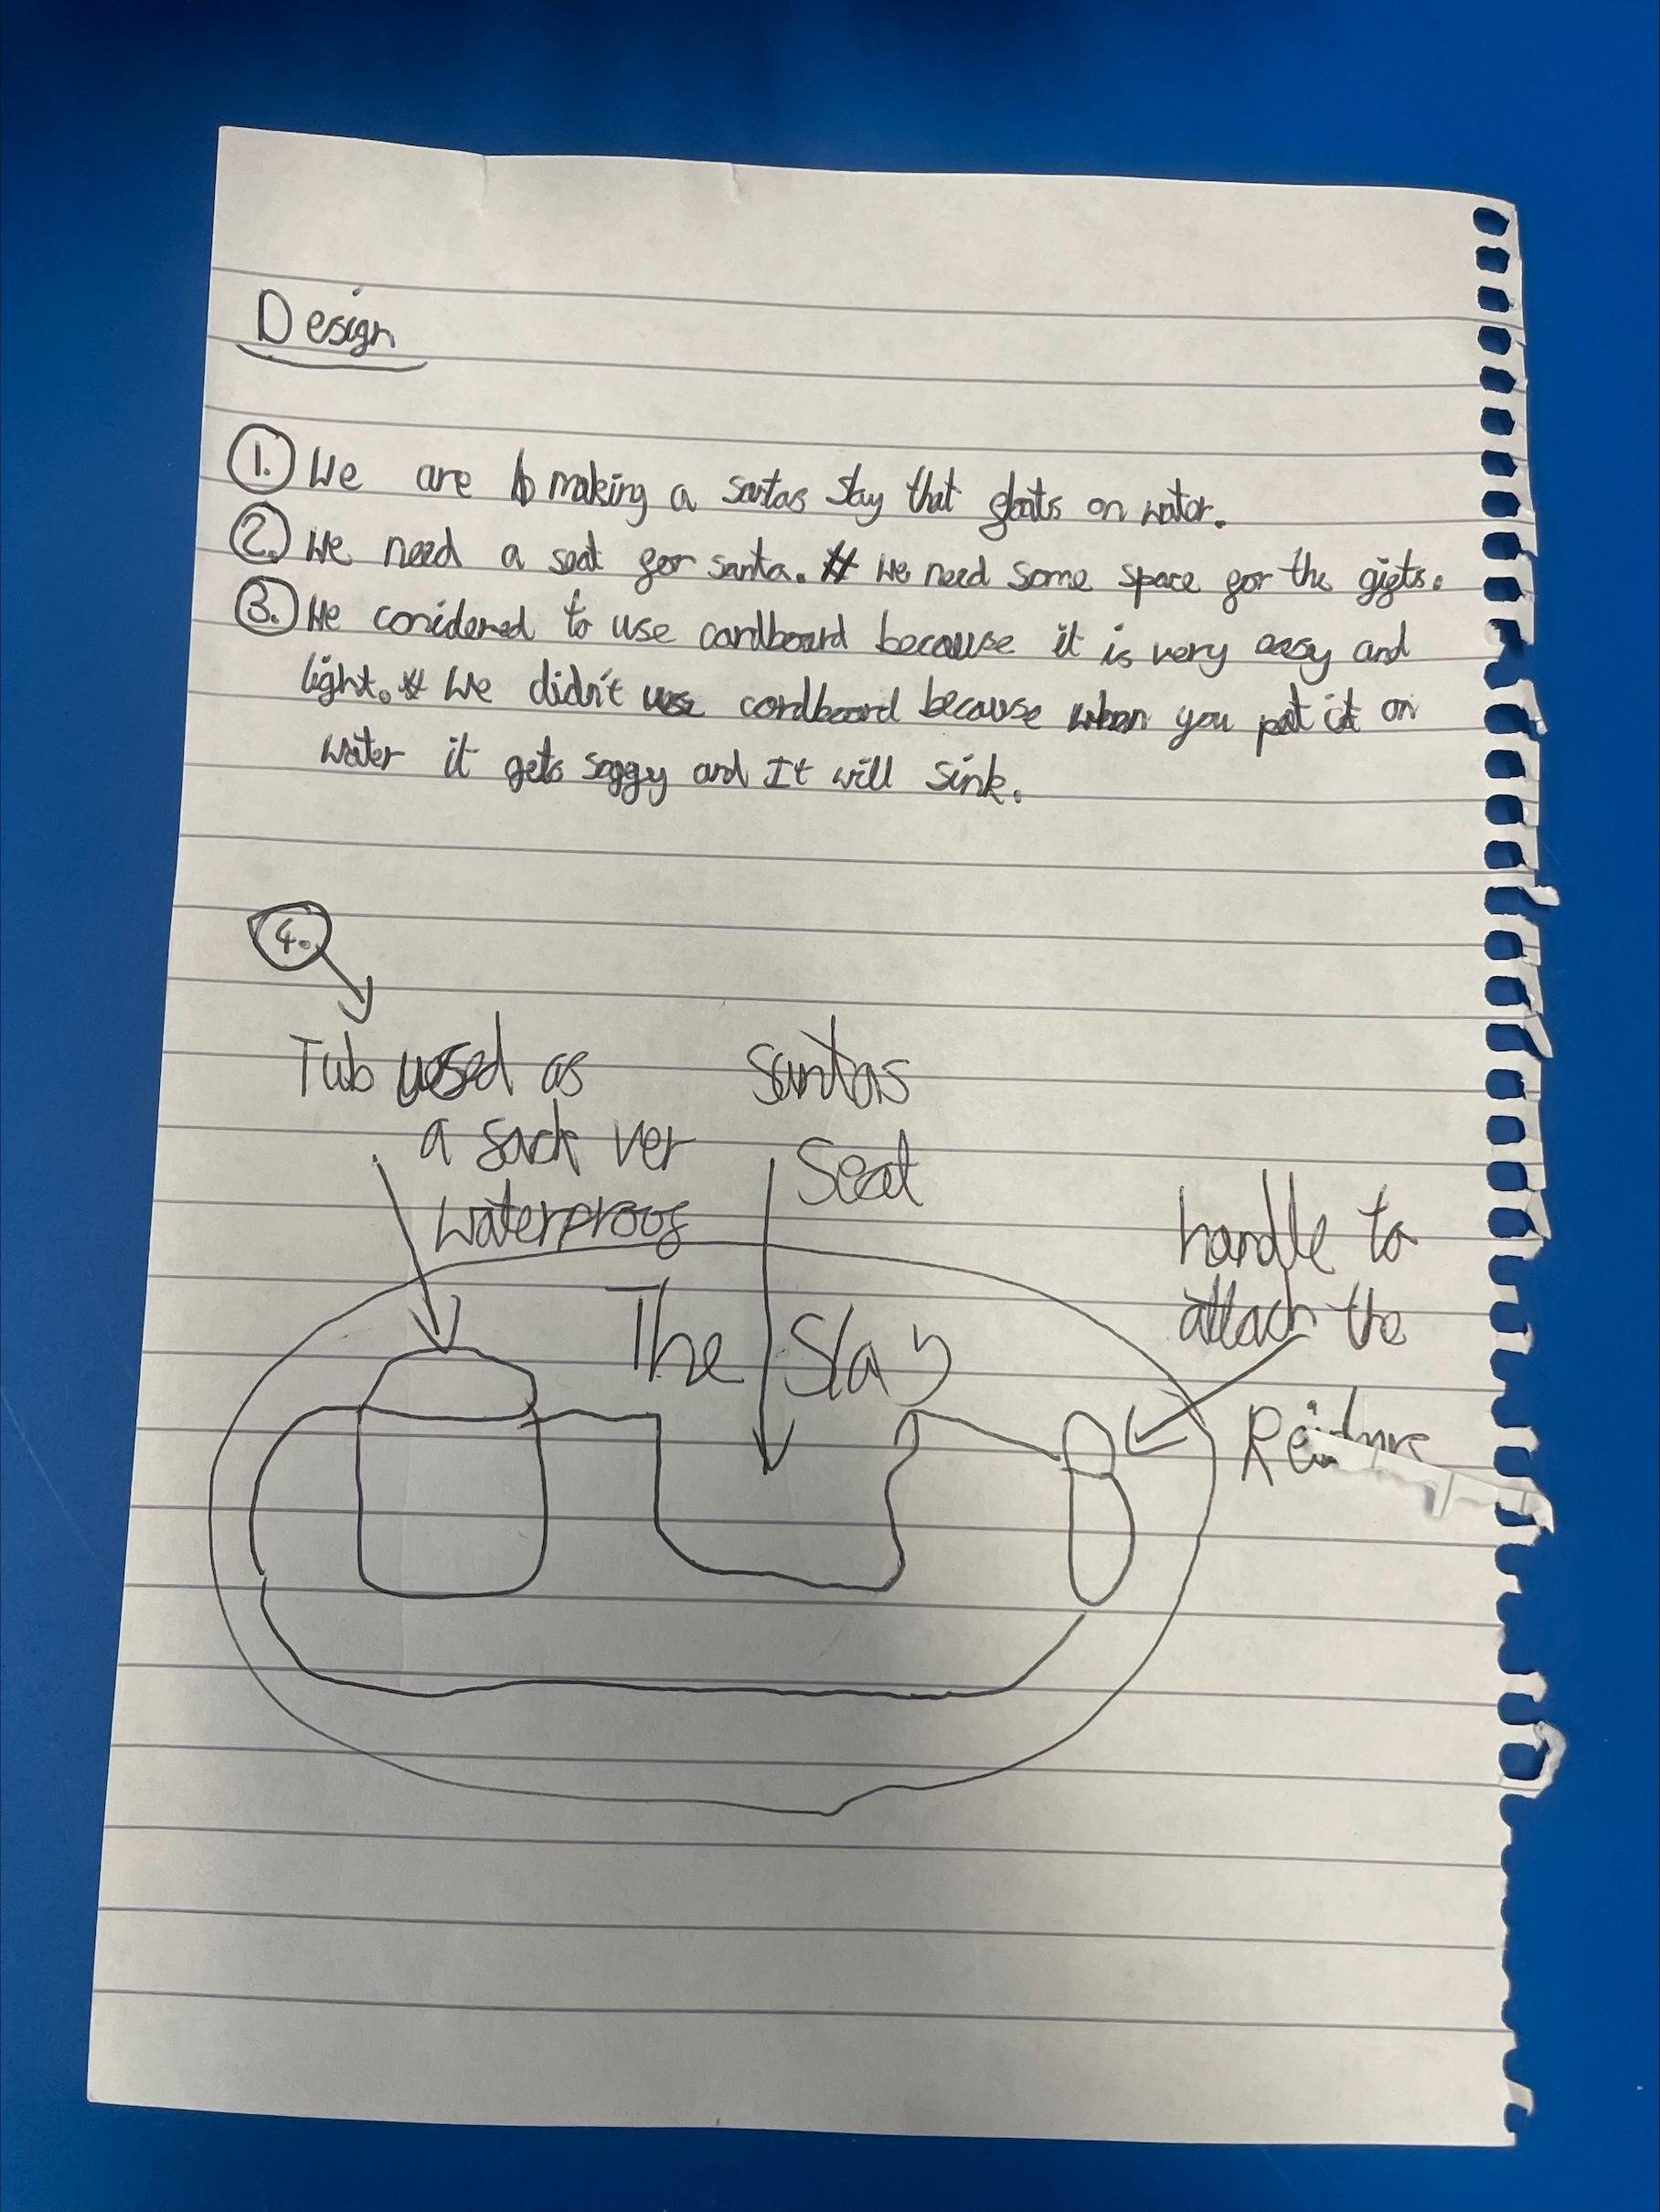 Design
1. We are making a santas slay that floats on water.
2. We need a seat for santa. # We need some space for the gifts.
3. We conidered to use cardboard because it is very easy and
light. # We didn't use cardboard because when you put it on
water it gets soggy and It will sink.
4.
Tub used as
a sack ver
waterproof
Santas
Seat
handle to
attach the
The Slay